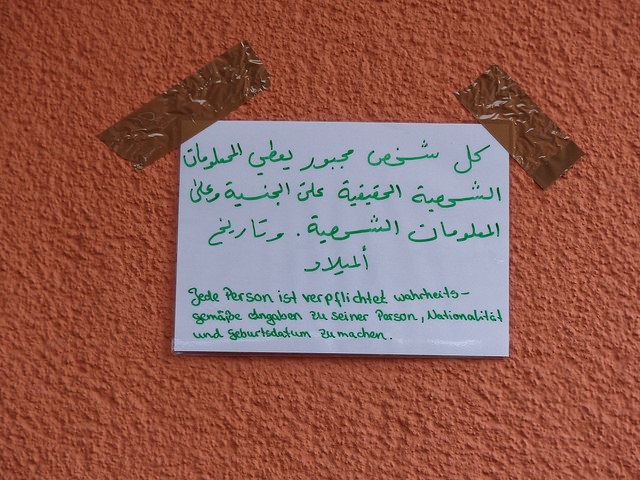 كل شخص مجبور يعطي المعلومات
الشخصية الحقيقية على الجنسية وعلى
المعلومات الشخصية. وتاريخ
ألميلاد
Jede Person ist verpflichtet wahrheits-
gemäße Angaben zu seiner Person, Nationalität
und Geburtsdatum zu machen.